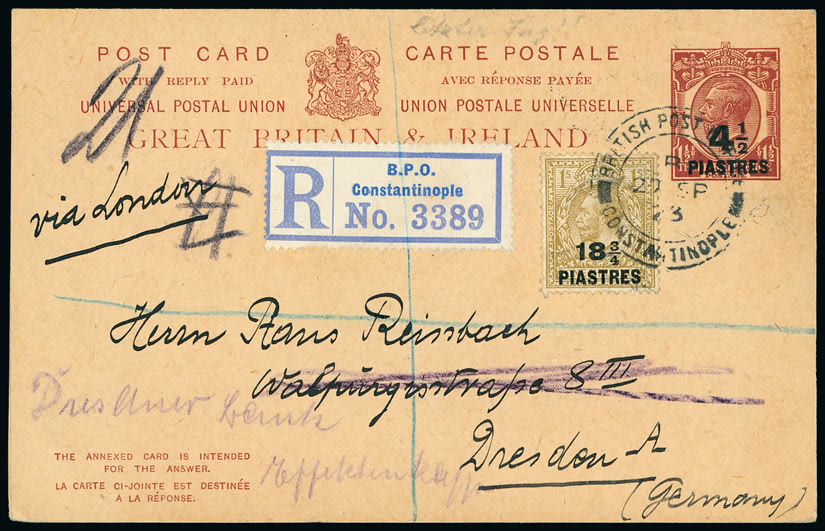 letzter Tag!!
POST CARD
WITH REPLY PAID
UNIVERSAL POSTAL UNION
CARTE POSTALE
AVEC RÉPONSE PAYÉE
UNION POSTALE UNIVERSELLE
GREAT BRITAIN & IRELAND
4 1/2
PIASTRES
21
via London
R
B.P.O.
Constantinople
No. 3389
18 3/4
PIASTRES
BRITISH POST
CONSTANTINOPLE
SP
23
Herrn Hans Reissbach
Walpurgisstraße 8 III
Dresdner Bank
Dresden-A
Effektenkasse
(Germany)
THE ANNEXED CARD IS INTENDED
FOR THE ANSWER.
LA CARTE CI-JOINTE EST DESTINÉE
A LA RÉPONSE.